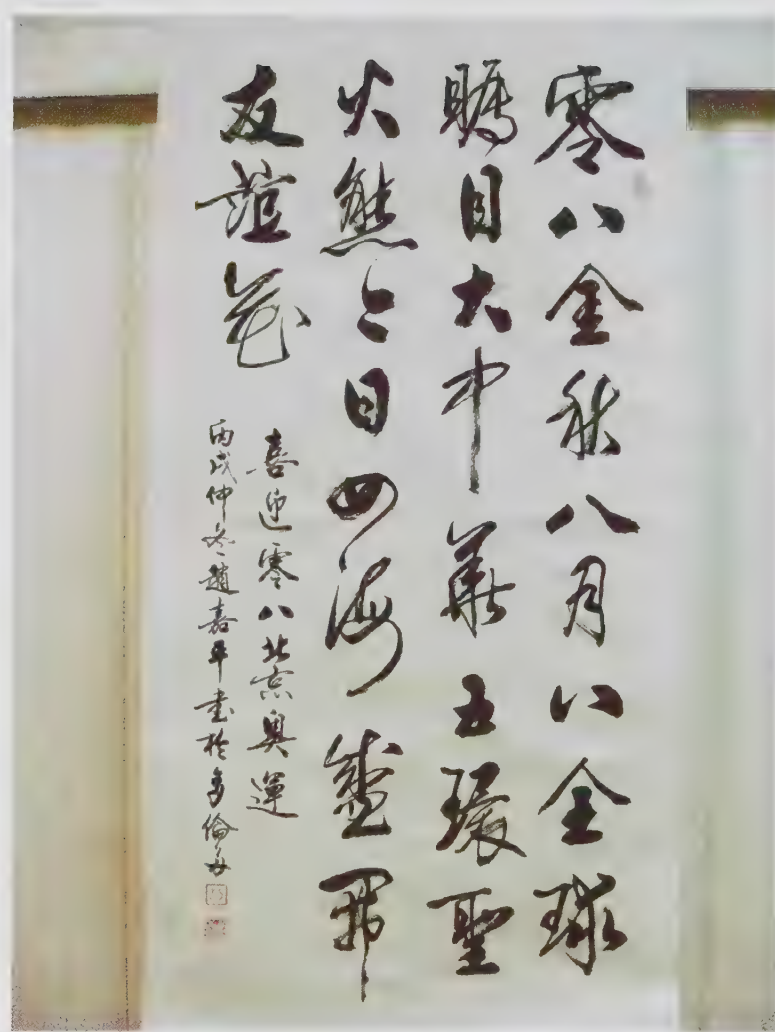 零八金秋八月八全球
矚目大中華五環聖
火熊々日四海盛開
友誼花
喜迎零八北京奧運
丙戌仲冬趙嘉平書於多倫多